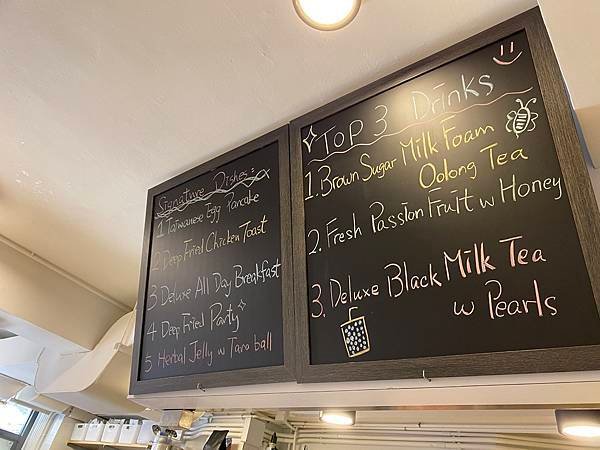 Signature Dishes:
1 Taiwanese Egg Pancake
2 Deep Fried Chicken Toast
3 Deluxe All Day Breakfast
4 Deep Fried Party
5 Herbal Jelly w Taro ball
TOP 3 Drinks
1. Brown Sugar Milk Foam
Oolong Tea
2. Fresh Passion Fruit w Honey
3. Deluxe Black Milk Tea
w Pearls